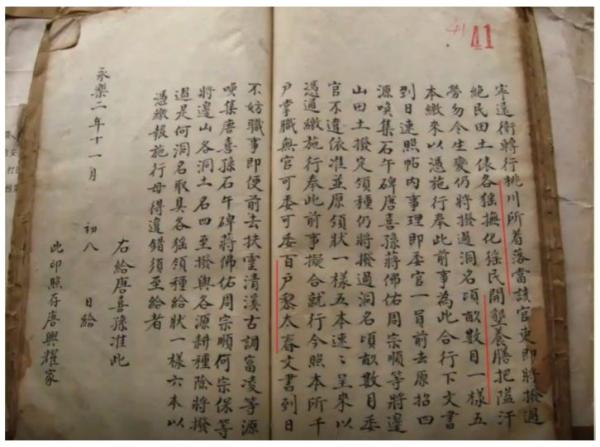 41 41
寧遠衛轉行桃川所着落當該官吏即將撥過
絕民田土俵各猺撫化猺民開墾養膳把隘汗
勞勿令生變仍將撥過洞名頃畝數目一樣五
本繳來以憑施行奉此前事為此合行下文書
到日速照帖內事理即委官一員前去原招四
源喚集石午碑唐喜孫蔣佛佑周宗順等將邊
山田土撥定領種仍將撥過洞名頃畝數目委
官不違依准並原領狀一樣五本速〻呈來以
憑通繳施行奉此前事擬合就行今照本所千
戶掌職無官可委可委百戶黎太春文書到日
不妨職事即便前去扶靈清溪古調富凌等源
喚集唐喜孫石午碑蔣佛佑周宗順何宗保等
將邊山各洞土名四至撥與各源耕種除將撥
過是何洞名取具各猺領種給狀一樣六本以
憑繳報施行毋得違錯須至給者
右給唐喜孫准此
永樂二年十一月 初八 日給
此印照存唐興耀家